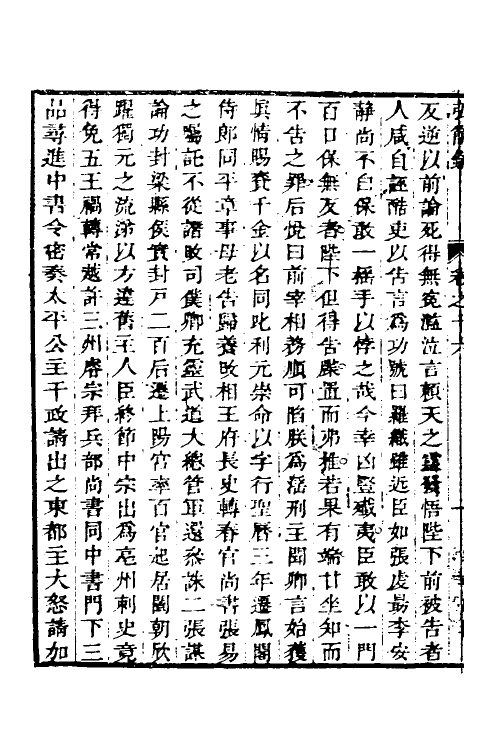 反逆以前論死得無冤濫泣言賴天之靈發悟陛下前被告者
人咸自誣酷吏以告言為功號曰羅織雖近臣如張虔勗李安
靜尚不自保敢一搖手以悖之哉今幸凶豎殲夷臣敢以一門
百口保無反者陛下但得告牒置而弗推若果有端甘坐知而
不告之罪后悅曰前宰相務順可陷朕為淫刑主聞卿言始獲
眞情賜賚千金以名同叱利元崇命以字行聖曆三年遷鳳閣
侍郎同平章事母老告歸養政相王府長史轉春官尚書張易
之囑託不從譖改司僕卿充靈武道大總管軍還參誅二張謀
論功封梁縣侯實封戶二百后遷上陽宮率百官起居閣朝欣
躍獨元之流涕以方違舊主人臣終節中宗出為亳州刺史竟
得免五王禍轉常越許三州睿宗拜兵部尚書同中書門下三
品尋進中書令密奏太平公主干政請出之東都主大怒請加
卷之十六